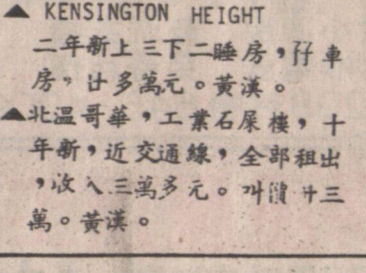 ▲ KENSINGTON HEIGHT
二年新上三下二睡房，孖車
房，廿多萬元。黃漢。
▲北溫哥華，工業石屎樓，十
年新，近交通線，全部租出
，收入三萬多元。叫價廿三
萬。黃漢。